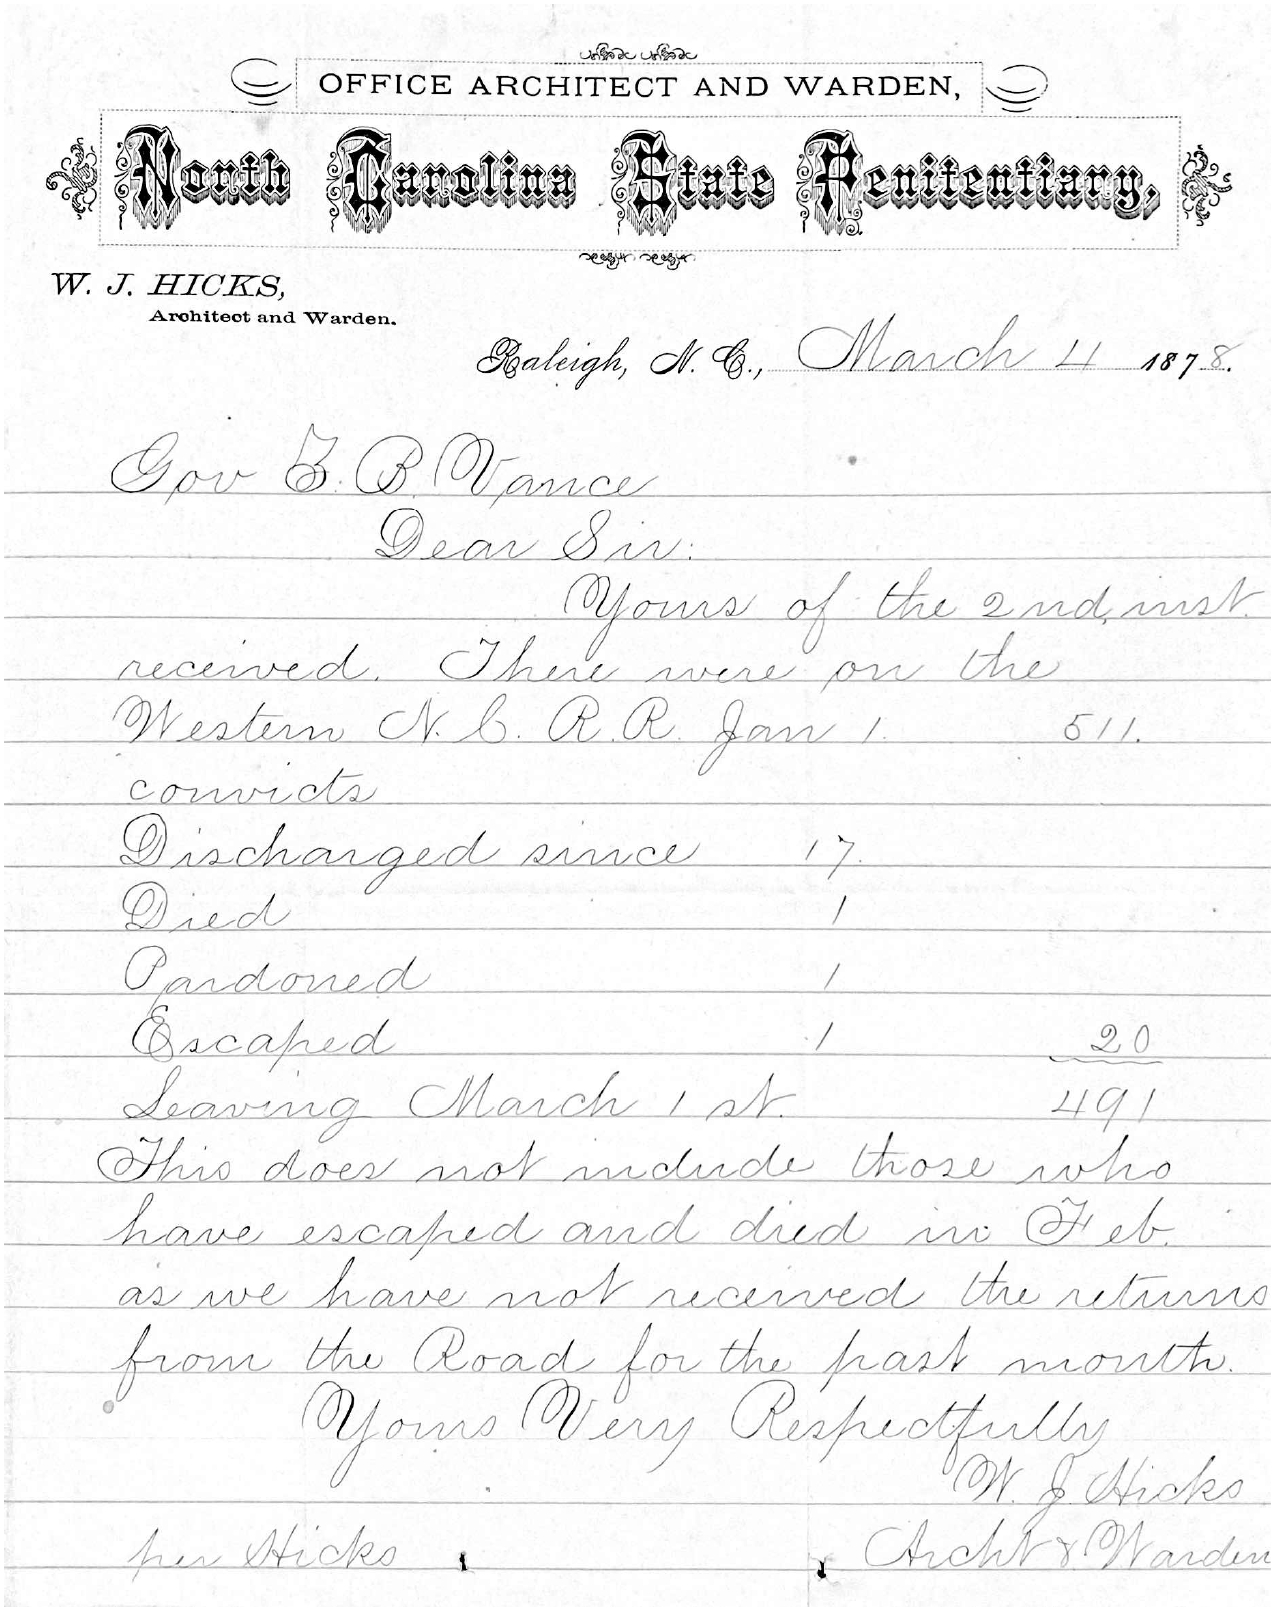 OFFICE ARCHITECT AND WARDEN,
North Carolina State Penitentiary,
W. J. HICKS,
Architect and Warden.
Raleigh, N. C., March 4 1878.
Gov Z. B. Vance
Dear Sir:
Yours of the 2nd, inst.
received. There were on the
Western N. C. R. R. Jan 1. 511.
convicts
Discharged since 17.
Died 1
Pardoned 1
Escaped 1 20
Leaving March 1 st. 491
This does not include those who
have escaped and died in Feb.
as we have not received the returns
from the Road for the past month.
Yours Very Respectfully
W. J. Hicks
per Hicks Archt & Warden